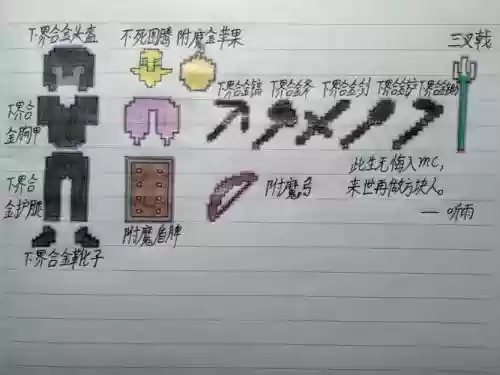 下界合金头盔
不死图腾
附魔金苹果
三叉戟
下界合
金胸甲
下界合金镐
下界合金斧
下界合金剑
下界合金铲
下界合金锄
下界合
金护腿
附魔弓
此生无悔入mc,
来世再做方块人。
—— 听雨
附魔盾牌
下界合金靴子